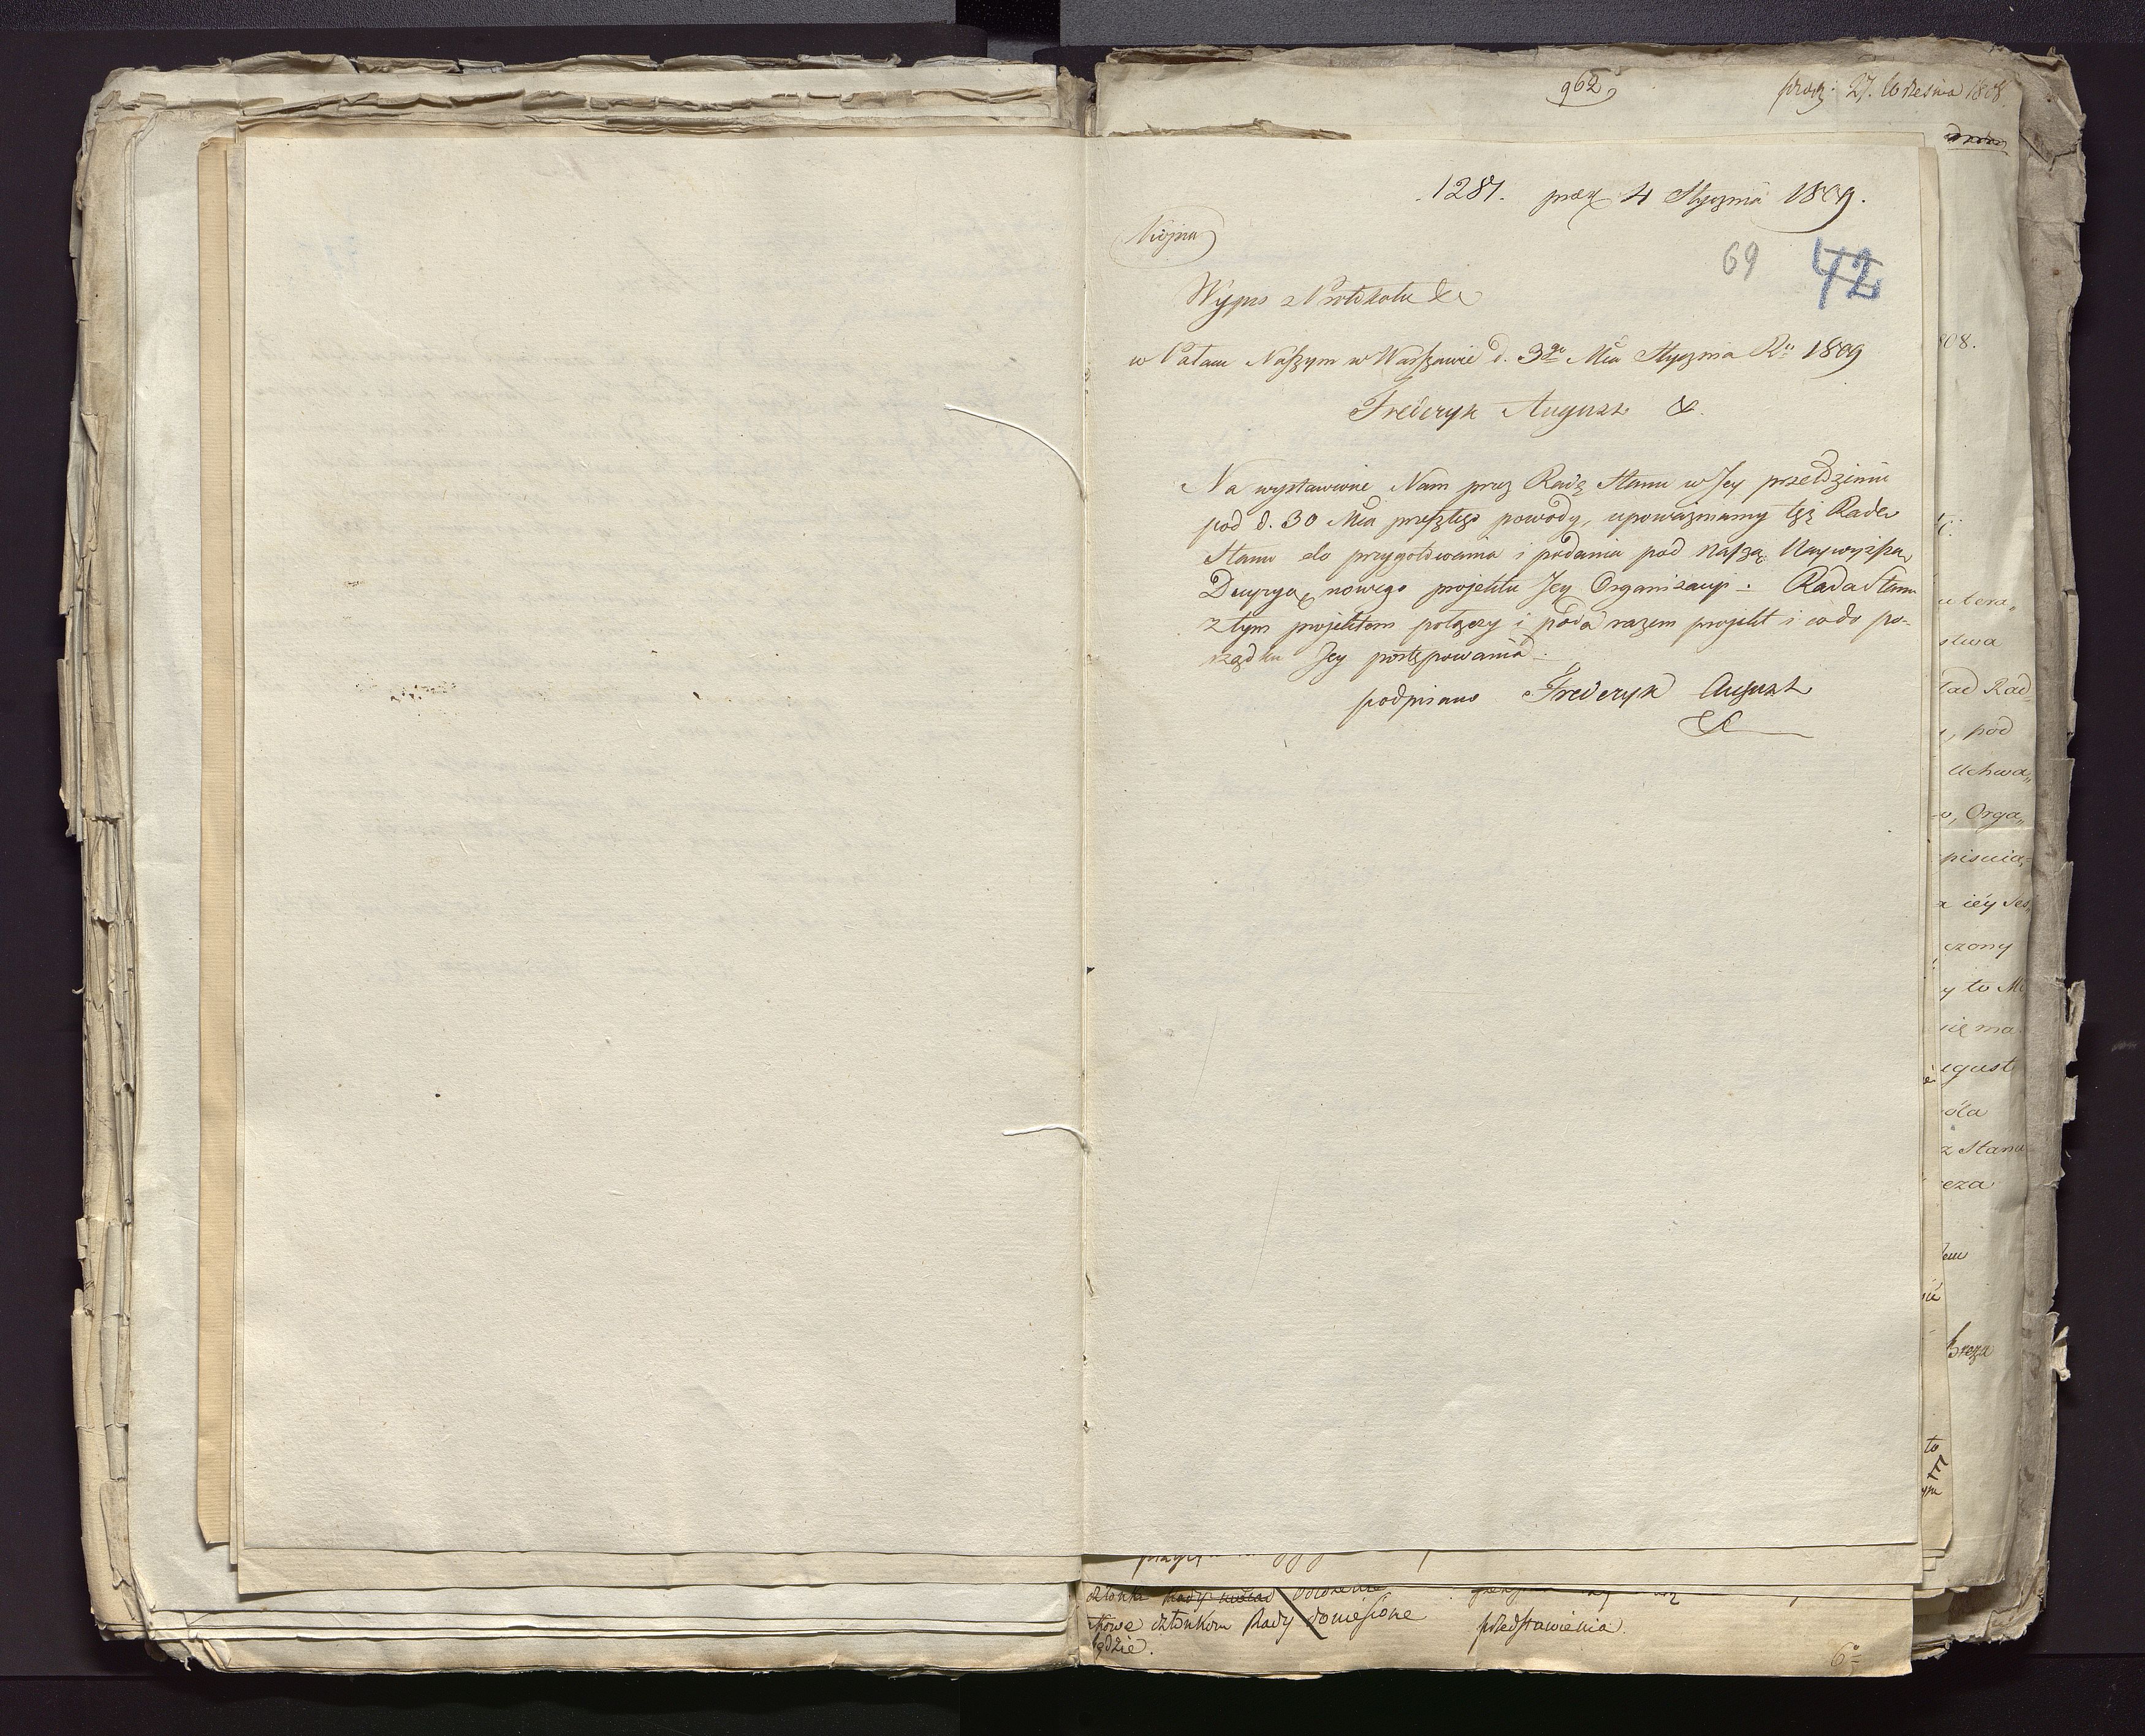 962
27. Września 1808
1287. præs 4 Stycznia 1809.
69 72
Wypis z Protokołu &c
w Pałacu Naszym w Warszawie d. 3go Mca Stycznia Ru 1809
Frederyk August &.
Na wystawione Nam przez Radę Stanu w Jey przełdzeniu
pod d. 30 Mca przeszłego powody, upoważniamy tęż Radę
Stanu do przygotowania i podania pod Naszą Naywyższą
Decyzyą, nowego projektu Jey Organizacyi. Rada Stanu
z tym projektem połączy i poda razem projekt i co do po-
rządku Jey postępowania.
podpisano Frederyk August
808.
stwa
, pod
Uchwa„
, Orga„
iéy Ses„
czony
y to
ma
ugust
óla
z Stanu
eza
Breza
to
członkom Rady doniesione
przedstawienia.
będzie.
6o